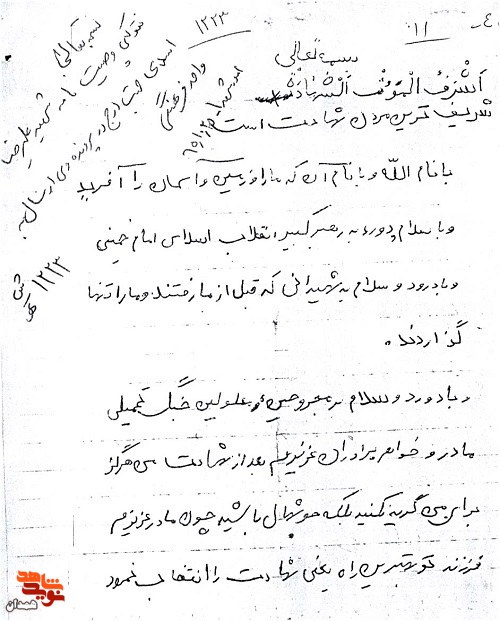 ۱۱
۱۲۲۳
بسمه تعالی
اشرف الموت الشهادة
شریف ترین مردن شهادت است
با نام الله و با نام آن که ما را و زمین و آسمان را آفرید
و با سلام و درود به رهبر کبیر انقلاب اسلامی امام خمینی
و با درود و سلام به شهیدانی که قبل از ما رفتند و ما را تنها
گذاردند.
و با درود و سلام بر مجروحین و معلولین جنگ تحمیلی
مادر و خواهر و برادران عزیزم بعد از شهادت من هرگز
برای من گریه نکنید بلکه خوشحال باشید چون مادر عزیزم
فرزند تو بهترین راه یعنی شهادت را انتخاب نمود
بسمه تعالی
فتوکپی وصیت نامه شهید علیرضا
اسلامی جهت درج در پرونده وی ارسال
واحد فرهنگی
۱۲۲۳
نوید شاهد
همدان